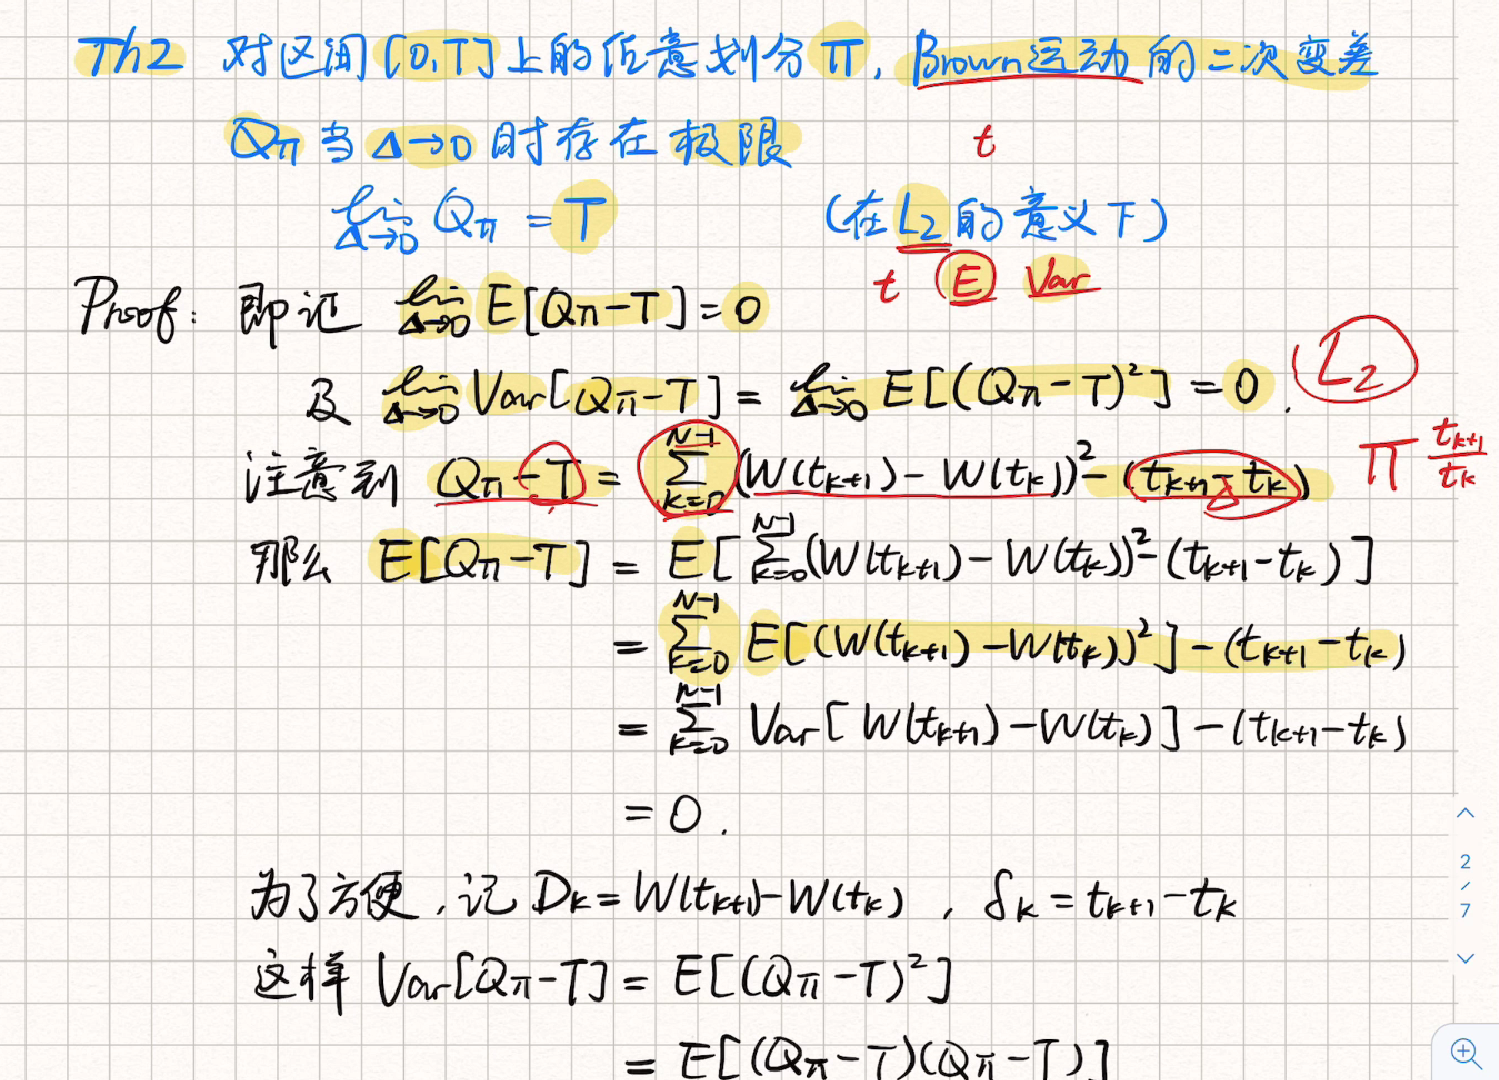 Th2 对区间[0,T]上的任意划分π,Brown运动的二次变差
Qπ当Δ→0时存在极限
t
lim Δ→0 Qπ = T (在L2的意义下)
t E Var
Proof: 即证 lim Δ→0 E[Qπ-T]=0
及 lim Δ→0 Var[Qπ-T] = lim Δ→0 E[(Qπ-T)²] = 0.
L2
注意到 Qπ-T = ∑k=0 N-1 (W(tk+1)-W(tk))²-(tk+1-tk)
π tk+1/tk
那么 E[Qπ-T] = E[∑k=0 N-1 (W(tk+1)-W(tk))²-(tk+1-tk)]
= ∑k=0 N-1 E[(W(tk+1)-W(tk))²]-(tk+1-tk)
= ∑k=0 N-1 Var[W(tk+1)-W(tk)]-(tk+1-tk)
= 0.
为了方便,记 Dk=W(tk+1)-W(tk), δk=tk+1-tk
这样 Var[Qπ-T] = E[(Qπ-T)²]
= E[(Qπ-T)(Qπ-T)]
2
/
7